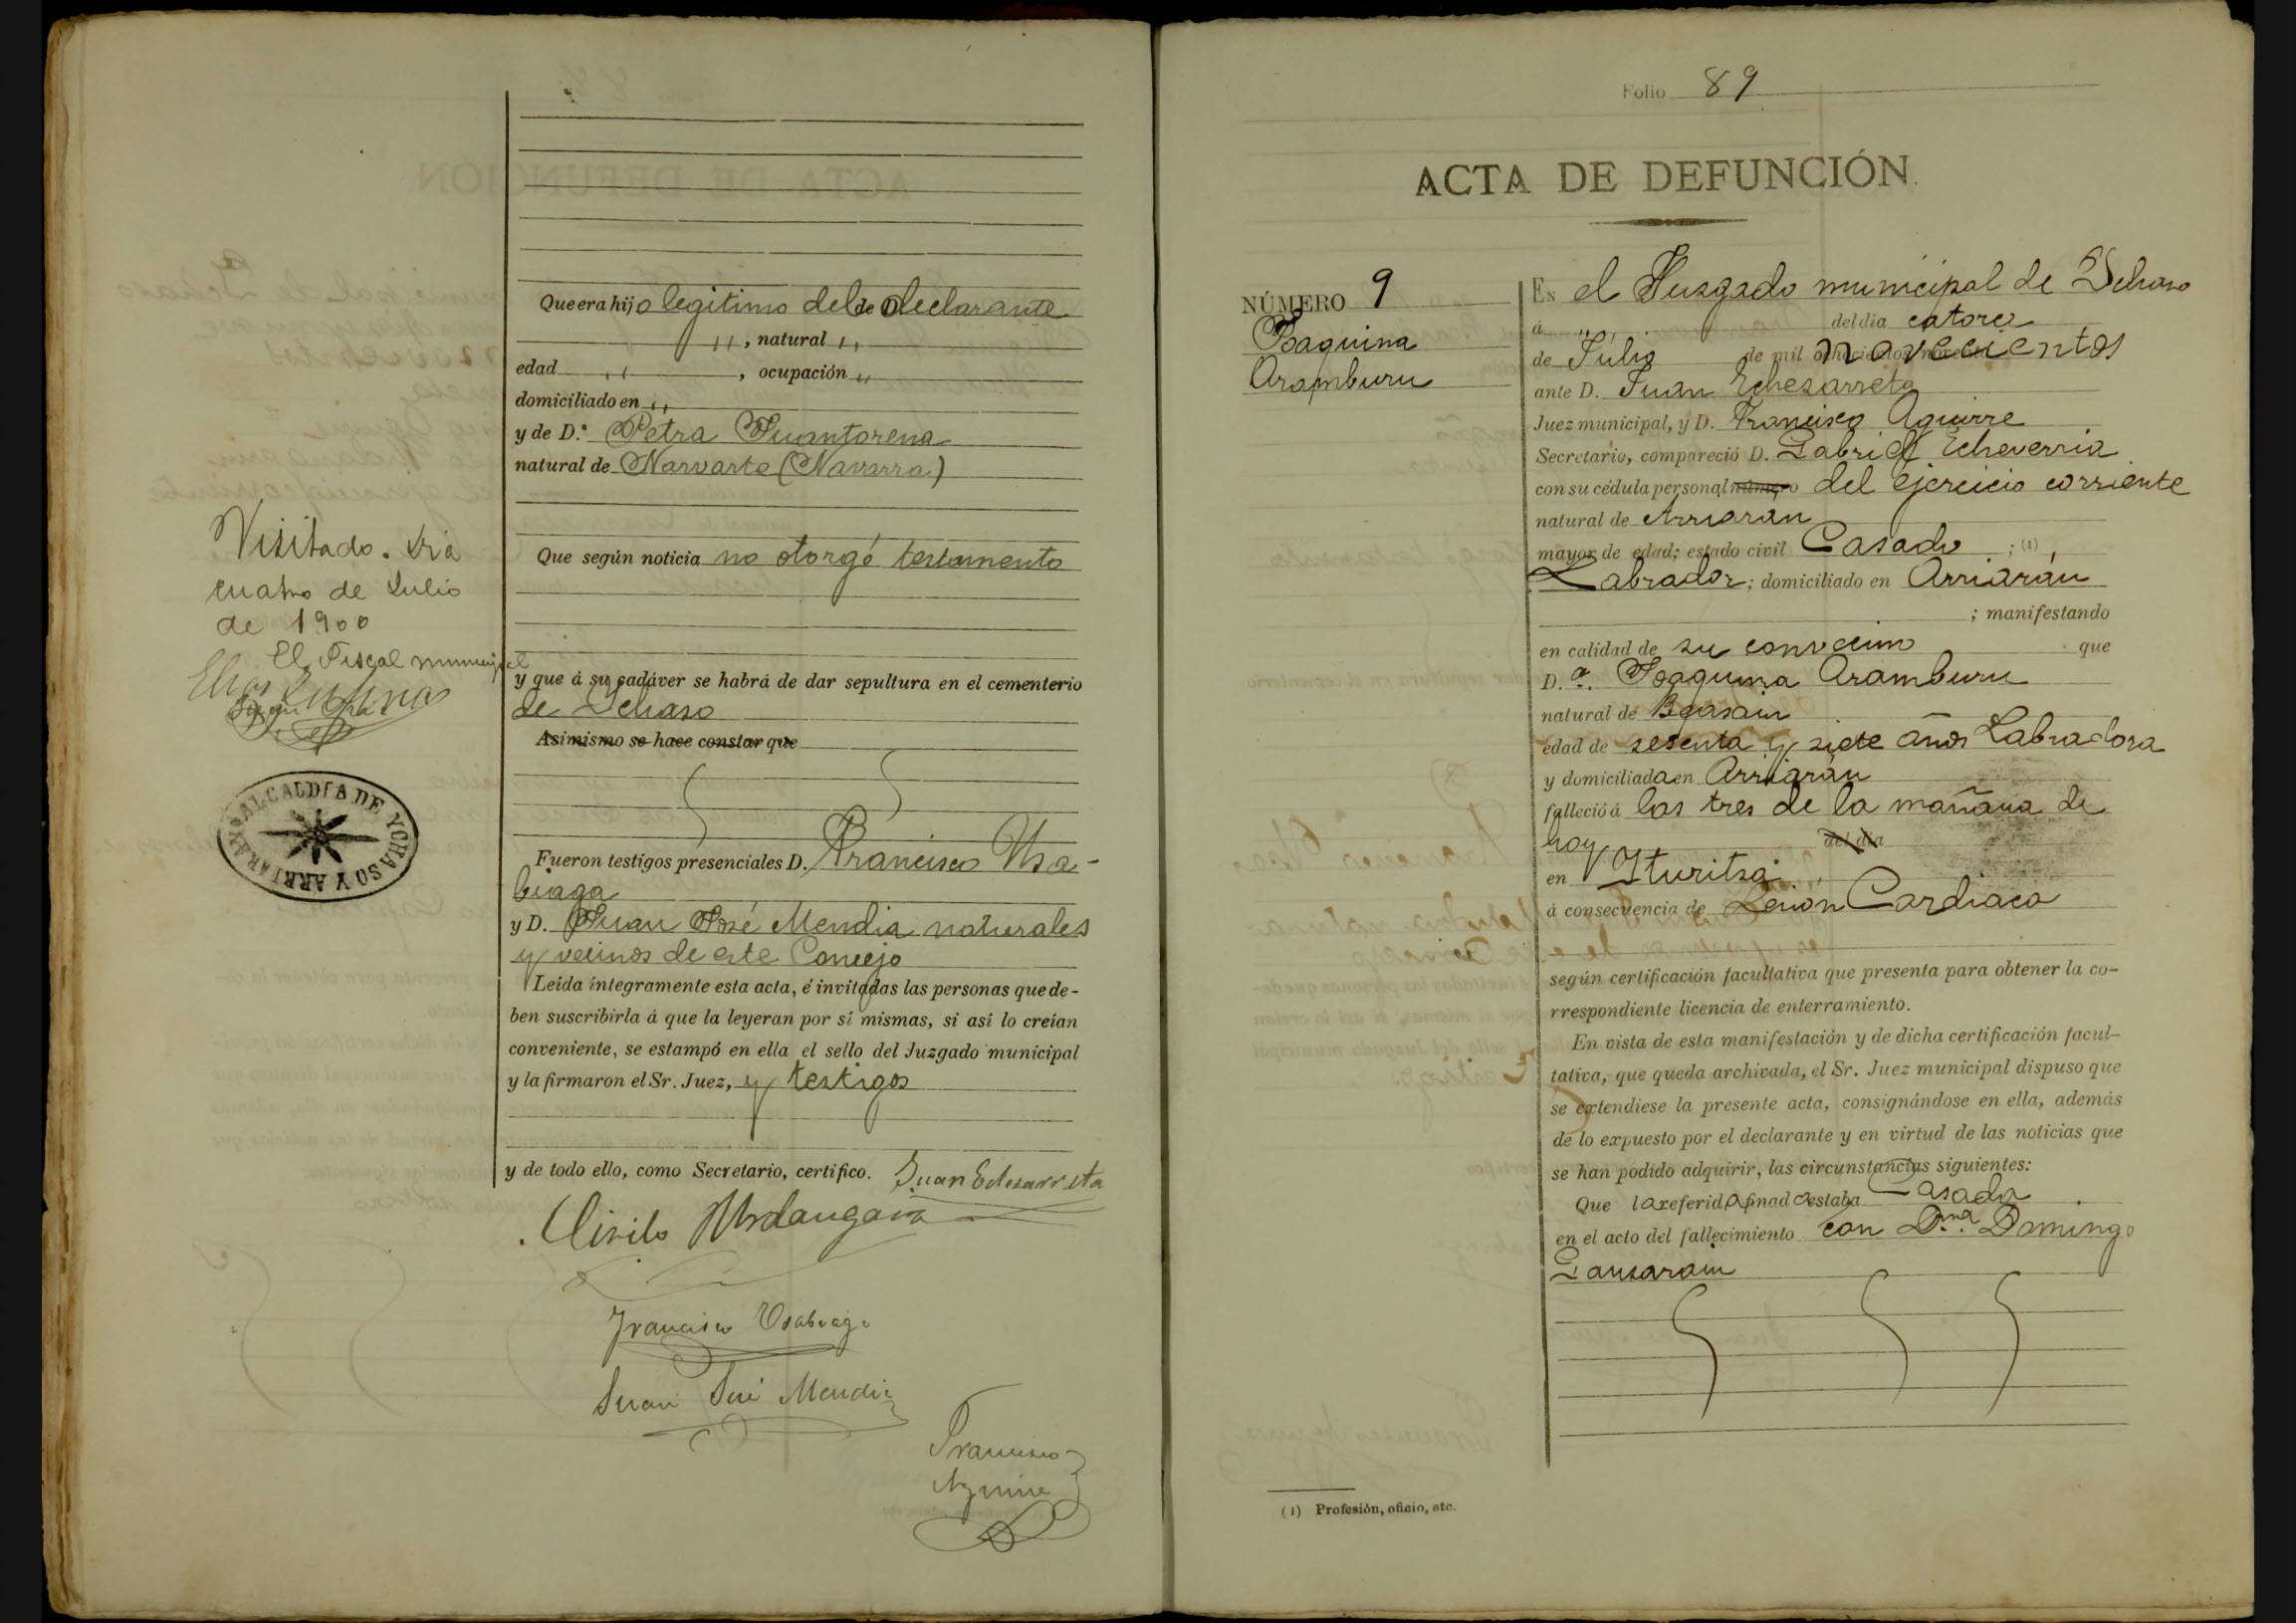 Que era hijo legitimo del de Declarante
,, , natural ,,
edad ,, , ocupación ,,
domiciliado en ,,
y de D.ª Petra Juantorena
natural de Narvarte (Navarra)
Que según noticia no otorgó testamento
y que á su cadáver se habrá de dar sepultura en el cementerio
de Ichaso
Asimismo se hace constar que
Fueron testigos presenciales D. Francisco Usa-
biaga
y D. Juan José Mendia naturales
y vecinos de este Concejo
Leída íntegramente esta acta, é invitadas las personas que de-
ben suscribirla á que la leyeran por sí mismas, si así lo creían
conveniente, se estampó en ella el sello del Juzgado municipal
y la firmaron el Sr. Juez, y testigos
y de todo ello, como Secretario, certifico. Juan Echesarreta
Cirilo Urdangarin
Francisco Usabiaga
Juan José Mendia
Francisco
Aguirre
Visitado. Dia
cuatro de Julio
de 1900
El Fiscal municipal
ALCALDÍA DE YCHASO Y ARRIARAN
Folio 89
ACTA DE DEFUNCIÓN.
NÚMERO 9
Joaquina
Aramburu
En el Juzgado municipal de Ichaso
á ,, del dia catorce
de Julio de mil ochocientos novecientos
ante D. Juan Echesarreta
Juez municipal, y D. Francisco Aguirre
Secretario, compareció D. Gabriel Echeverria
con su cédula personal número del ejercicio corriente
natural de Arriaran
mayor de edad; estado civil Casado ; (1)
Labrador; domiciliado en Arriarán
; manifestando
en calidad de su convecino que
D.ª Joaquina Aramburu
natural de Beasain
edad de sesenta y siete años Labradora
y domiciliada en Arriarán
falleció á las tres de la mañana de
hoy del dia
en Yturitza
á consecuencia de Lesion Cardiaca
según certificación facultativa que presenta para obtener la co-
rrespondiente licencia de enterramiento.
En vista de esta manifestación y de dicha certificación facul-
tativa, que queda archivada, el Sr. Juez municipal dispuso que
se extendiese la presente acta, consignándose en ella, además
de lo expuesto por el declarante y en virtud de las noticias que
se han podido adquirir, las circunstancias siguientes:
Que la referida finada estaba Casada
en el acto del fallecimiento con Dna. Domingo
Ganzarain
(1) Profesión, oficio, etc.